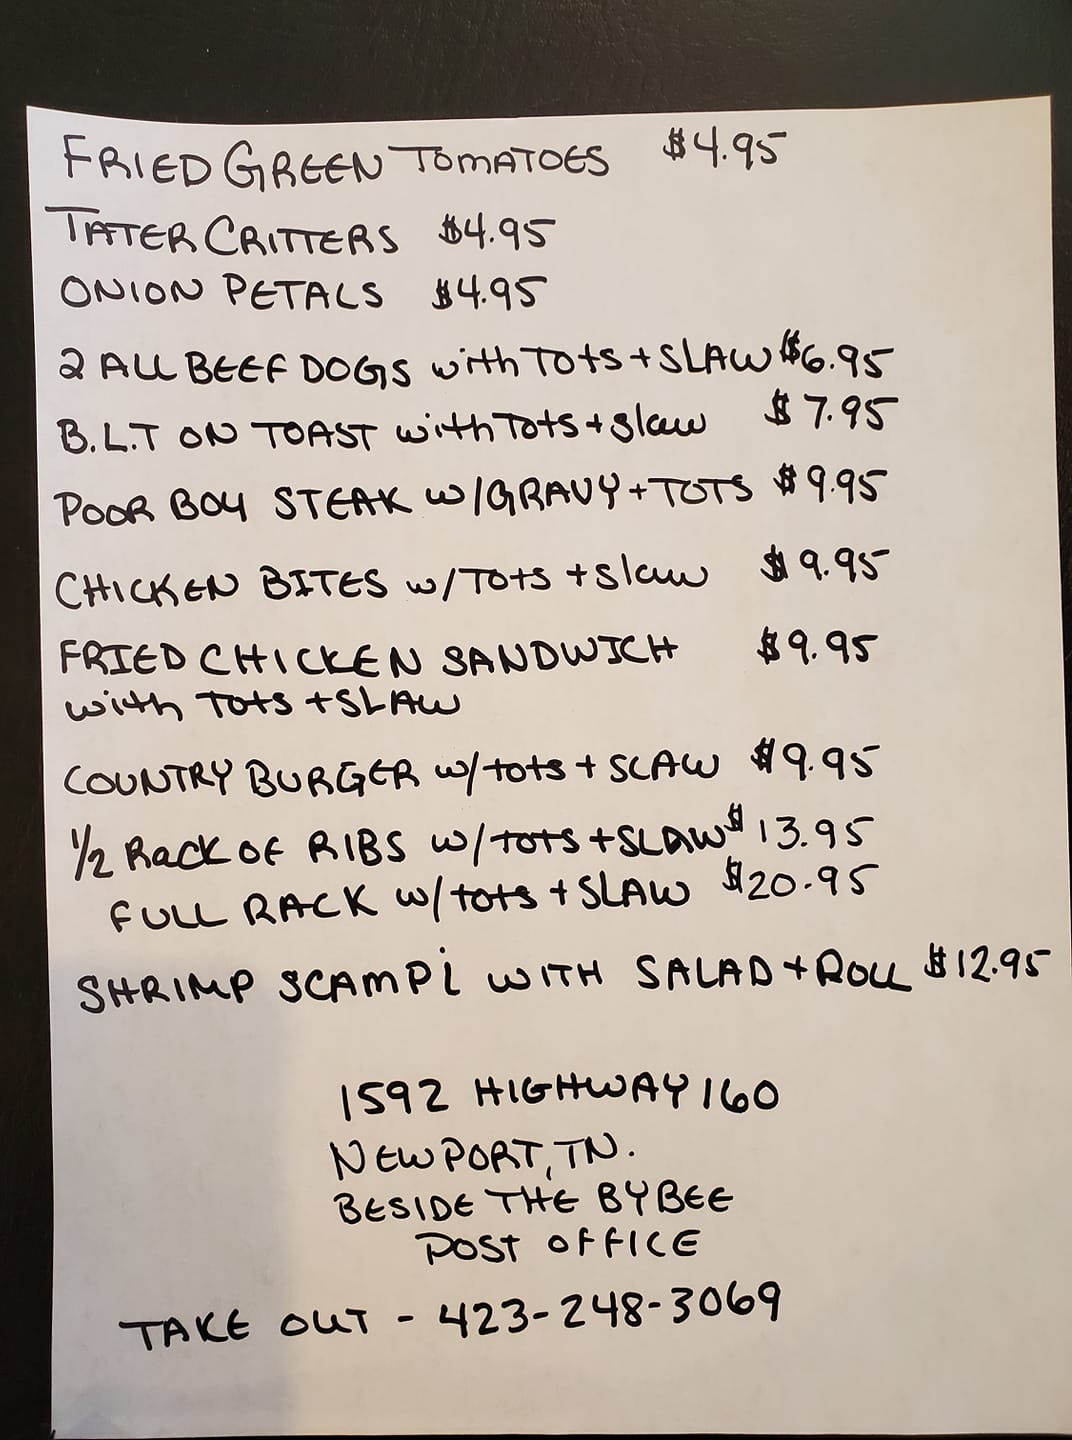 FRIED GREEN TOMATOES $4.95
TATER CRITTERS $4.95
ONION PETALS $4.95
2 ALL BEEF DOGS with TOTS + SLAW $6.95
B.L.T ON TOAST with Tots + Slaw $7.95
POOR BOY STEAK w/GRAVY + TOTS $9.95
CHICKEN BITES w/TOTS + Slaw $9.95
FRIED CHICKEN SANDWICH $9.95
with TOTS + SLAW
COUNTRY BURGER w/tots + SLAW $9.95
1/2 Rack OF RIBS w/TOTS + SLAW $13.95
FULL RACK w/tots + SLAW $20.95
SHRIMP SCAMPi WITH SALAD + ROLL $12.95
1592 HIGHWAY 160
NEWPORT, TN.
BESIDE THE BYBEE
POST OFFICE
TAKE OUT - 423-248-3069